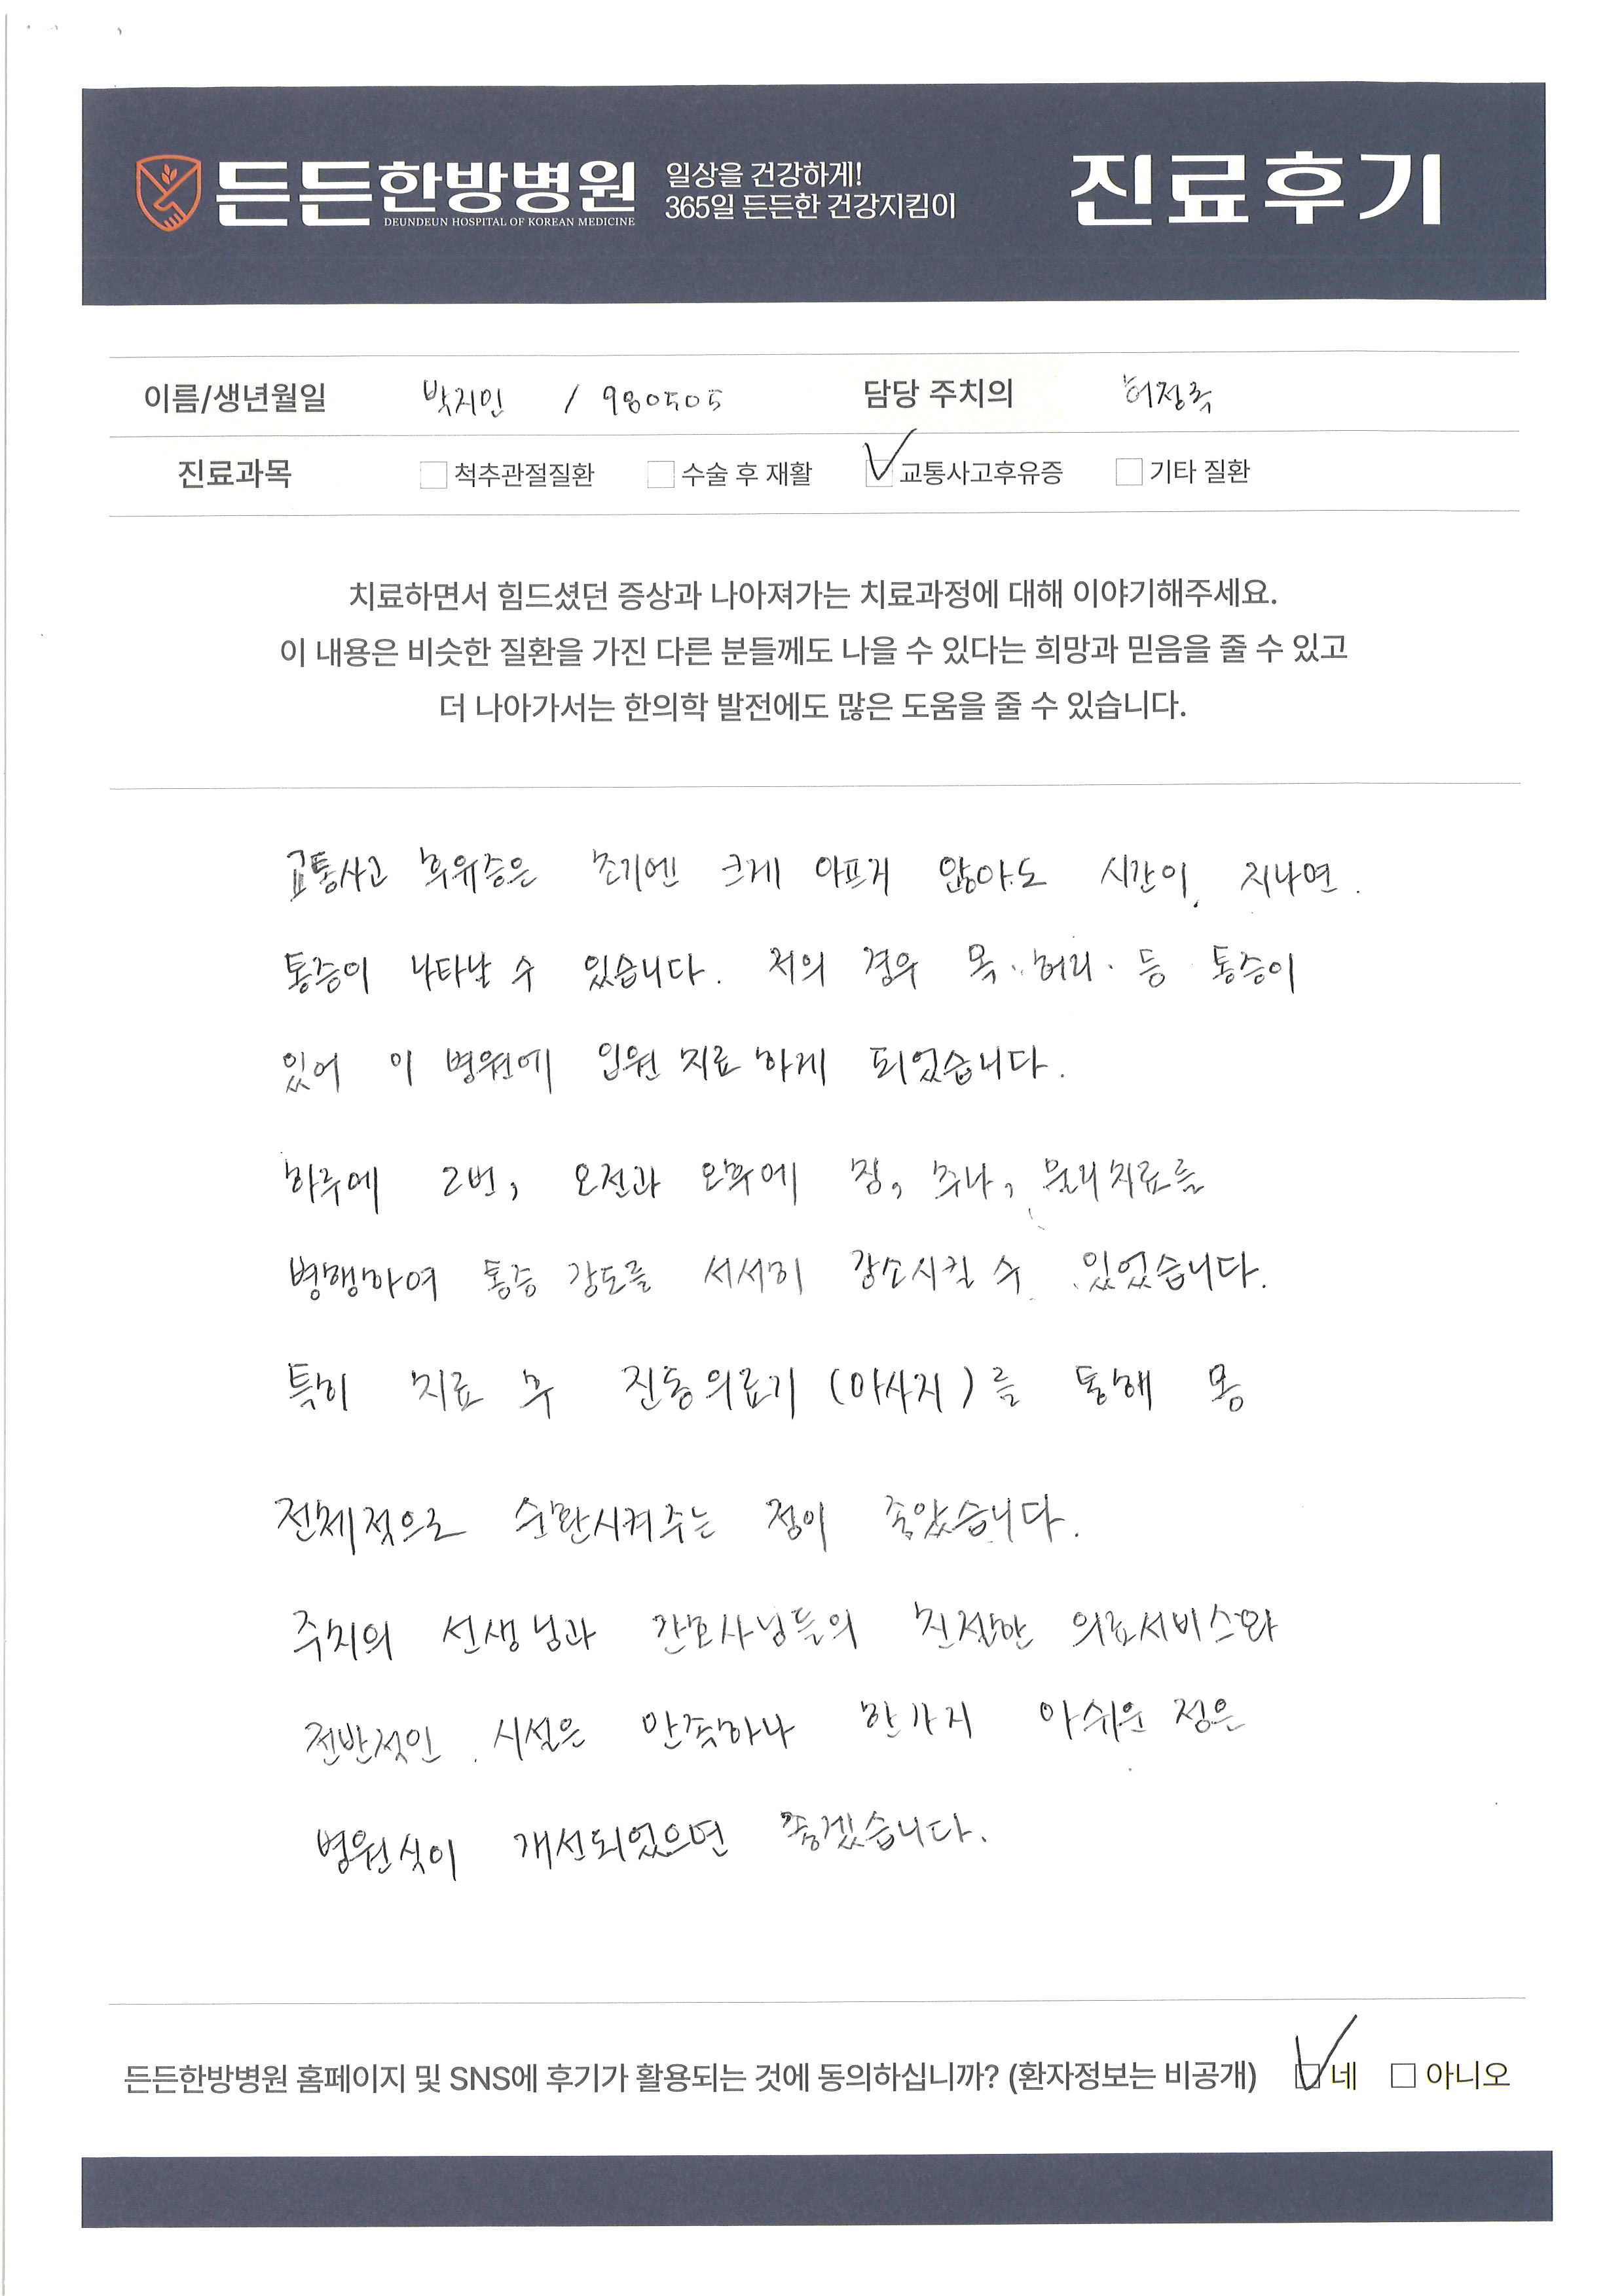 든든한방병원
DEUNDEUN HOSPITAL OF KOREAN MEDICINE
일상을 건강하게!
365일 든든한 건강지킴이
진료후기
이름/생년월일 박지민 / 980505 담당 주치의
진료과목 척추관절질환 수술 후 재활 교통사고후유증 기타 질환
치료하면서 힘드셨던 증상과 나아져가는 치료과정에 대해 이야기해주세요.
이 내용은 비슷한 질환을 가진 다른 분들께도 나을 수 있다는 희망과 믿음을 줄 수 있고
더 나아가서는 한의학 발전에도 많은 도움을 줄 수 있습니다.
교통사고 후유증은 초기엔 크게 아프지 않아도 시간이 지나면
통증이 나타날 수 있습니다. 저의 경우 목·허리·등 통증이
있어 이 병원에 입원 치료 하게 되었습니다.
하루에 2번, 오전과 오후에 침, 추나, 물리치료를
병행하여 통증 강도를 서서히 감소시킬 수 있었습니다.
특히 치료 후 진동의료기 (마사지)를 통해 몸
전체적으로 순환시켜주는 점이 좋았습니다.
주치의 선생님과 간호사님들의 친절한 의료서비스와
전반적인 시설은 만족하나 한가지 아쉬운 점은
병원식이 개선되었으면 좋겠습니다.
든든한방병원 홈페이지 및 SNS에 후기가 활용되는 것에 동의하십니까? (환자정보는 비공개) 네 아니오